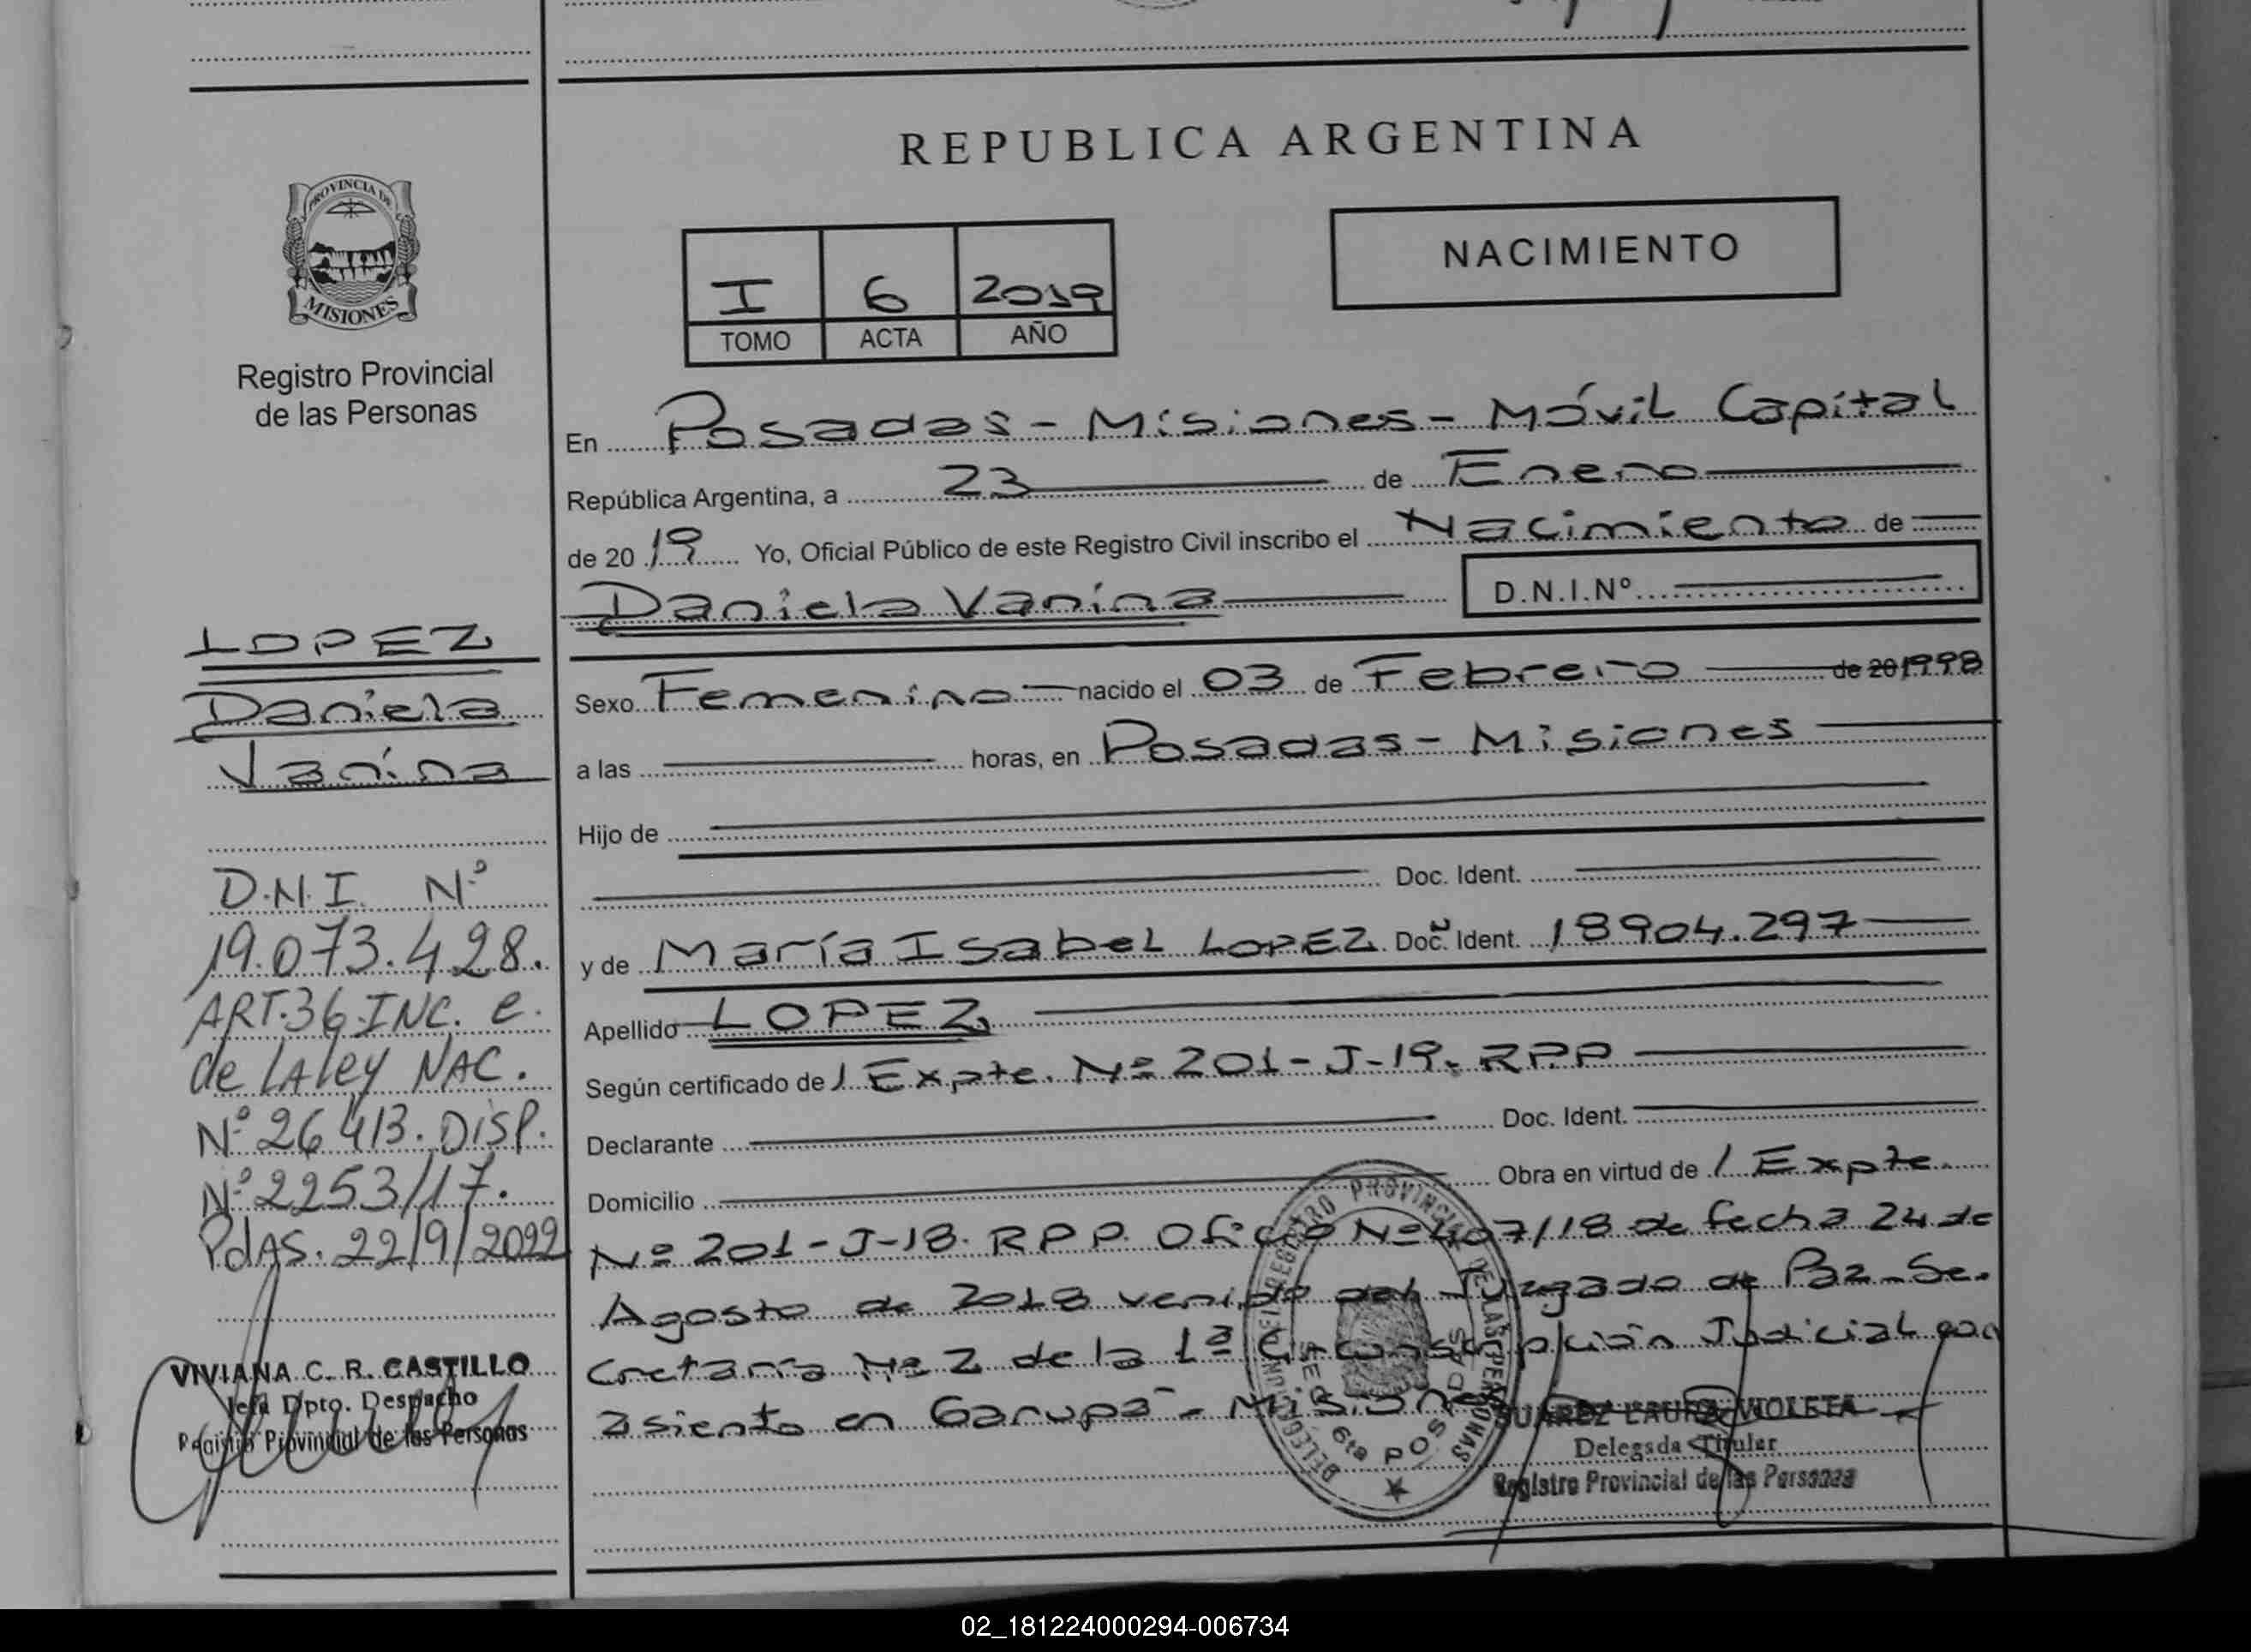 REPUBLICA ARGENTINA
PROVINCIA DE
MISIONES
Registro Provincial
de las Personas
NACIMIENTO
I 6 2019
TOMO ACTA AÑO
En Posadas - Misiones - Móvil Capital
República Argentina, a 23 de Enero
de 2019 Yo, Oficial Público de este Registro Civil inscribo el Nacimiento de
Daniela Vanina D.N.I.Nº
Sexo Femenino nacido el 03 de Febrero de 20 1998
a las horas, en Posadas - Misiones
Hijo de
Doc. Ident.
y de María Isabel LOPEZ Doc. Ident. 18904.297
Apellido LOPEZ
Según certificado de 1 Expte. Nº 201-J-19. RPP
Declarante Doc. Ident.
Domicilio Obra en virtud de 1 Expte.
Nº 201-J-18. RPP. Oficio Nº 407/18 de fecha 24 de
Agosto de 2018 venido del Juzgado de Paz Se.
cretaría Nº 2 de la 1ª Circunscripción Judicial con
asiento en Garupá - Misiones
LOPEZ
Daniela
Vanina
D.N.I. Nº
19.073.428.
ART.36 INC. e.
de LA ley NAC.
Nº 26413. DISP.
Nº 2253/17.
PdAS. 22/9/2022
VIVIANA C. R. CASTILLO
Jefa Dpto. Despacho
Registro Provincial de las Personas
REGISTRO PROVINCIAL DE LAS PERSONAS
6ta
POSADAS
SUAREZ LAURA VIOLETA
Delegada Titular
Registro Provincial de las Personas
02_181224000294-006734